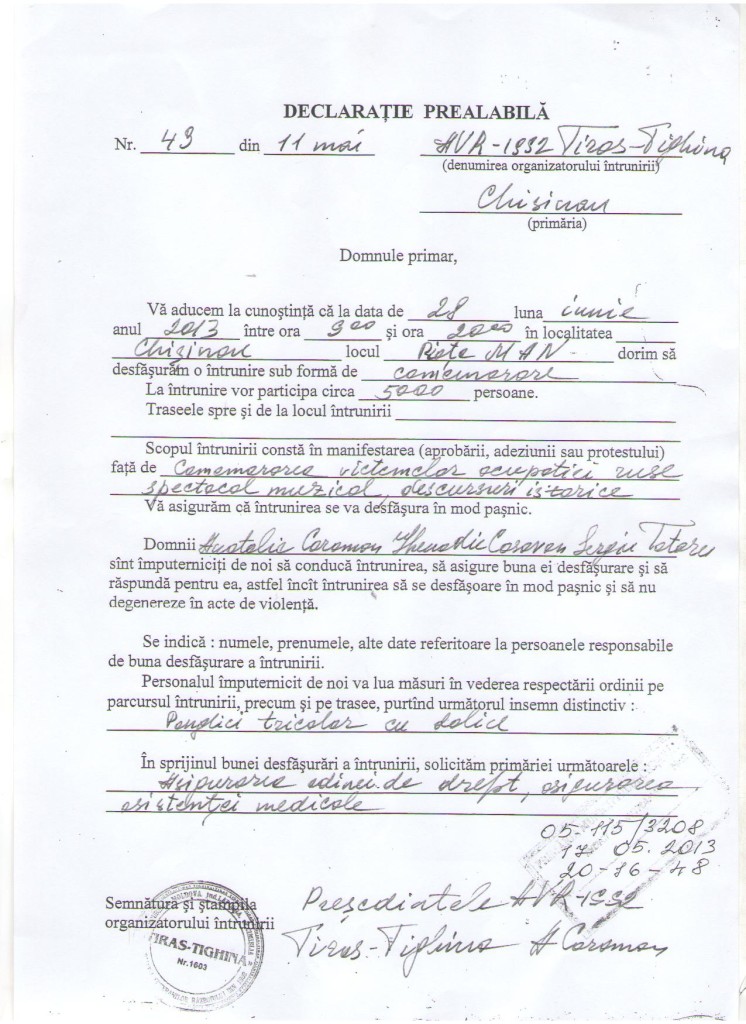 DECLARAŢIE PREALABILĂ
Nr. 43 din 11 mai AVR-1992 Tiras-Tighina
(denumirea organizatorului întrunirii)
Chişinau
(primăria)
Domnule primar,
Vă aducem la cunoştinţă că la data de 28 luna iunie
anul 2013 între ora 9 00 şi ora 20 00 în localitatea
Chişinau locul Piaţa MAN dorim să
desfăşurăm o întrunire sub formă de comemorare
La întrunire vor participa circa 5000 persoane.
Traseele spre şi de la locul întrunirii
Scopul întrunirii constă în manifestarea (aprobării, adeziunii sau protestului)
faţă de Comemorarea victemelor ocupatiei ruse
spectacol muzical, descursuri istorice
Vă asigurăm că întrunirea se va desfăşura în mod paşnic.
Domnii Anatolie Caraman Ghenadie Sergiu Tataru
sînt împuterniciţi de noi să conducă întrunirea, să asigure buna ei desfăşurare şi să
răspundă pentru ea, astfel încît întrunirea să se desfăşoare în mod paşnic şi să nu
degenereze în acte de violenţă.
Se indică : numele, prenumele, alte date referitoare la persoanele responsabile
de buna desfăşurare a întrunirii.
Personalul împuternicit de noi va lua măsuri în vederea respectării ordinii pe
parcursul întrunirii, precum şi pe trasee, purtînd următorul insemn distinctiv :
Panglici tricolor cu dolie
În sprijinul bunei desfăşurări a întrunirii, solicităm primăriei următoarele :
Asigurarea odinei de drept, asigurarea
asistenţei medicale
05-115/3208
17 05. 2013
20-16-48
Semnătura şi ştampila Preşedintele AVR-1992
organizatorului întrunirii Tiras-Tighina A Caraman
TIRAS-TIGHINA
Nr.1603